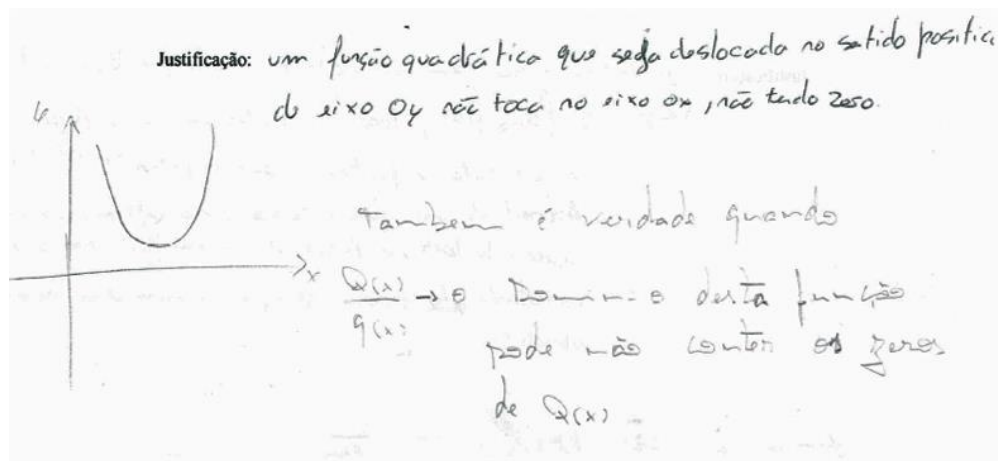 Justificação: um função quadrática que seja deslocada no sentido positivo
do eixo Oy não toca no eixo Ox, não tendo zero.
y
x
Tambem é verdade quando
Q(x)/q(x) → o Dominio desta função
pode não conter os zeros
de Q(x)